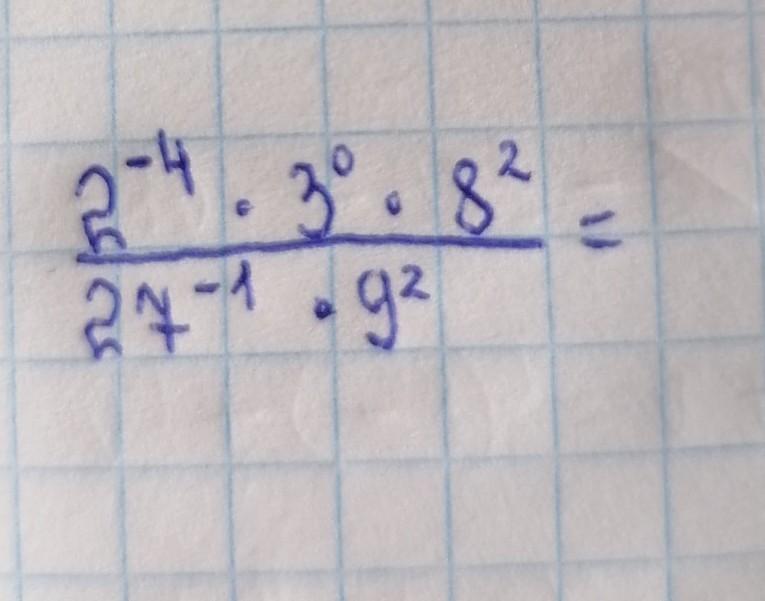 2⁻⁴ · 3⁰ · 8² =
27⁻¹ · 9²